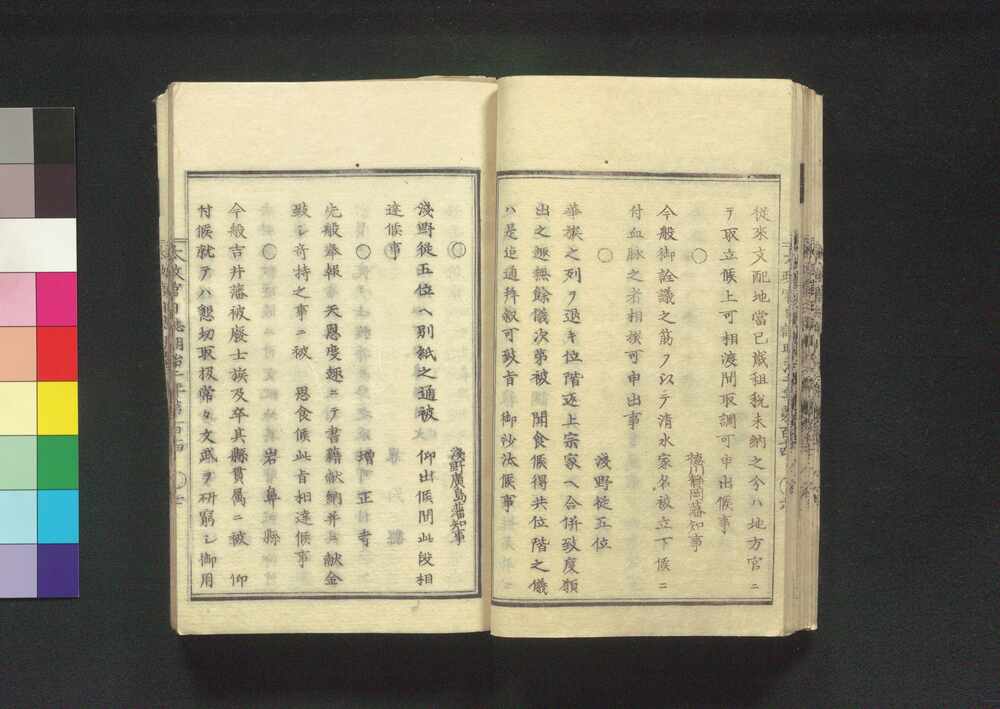 從來支配地當巳歲租稅未納之分ハ地方官ニ
テ取立候上可相渡間取調可申出候事
○
德川靜岡藩知事
今般御詮議之筋ヲ以テ清水家名被立下候ニ
付血脈之者相撰可申出事
○
淺野從五位
華族之列ヲ退キ位階返上宗家ヘ合併致度願
出之趣無餘儀次第被 聞食候得共位階之儀
ハ是迄通拜敘可致旨 御沙汰候事
○
淺野廣島藩知事
淺野從五位ヘ別紙之通被 仰出候間此段相
達候事
○
增正寺
先般奉報 天恩度趣ニテ書籍獻納并獻金
致シ奇特之事ニ被 思食候此旨相達候事
○
岩鼻縣
今般吉井藩被廢士族及卒其縣貫屬ニ被 仰
付候就テハ懇切取扱常々文武ヲ研窮シ御用